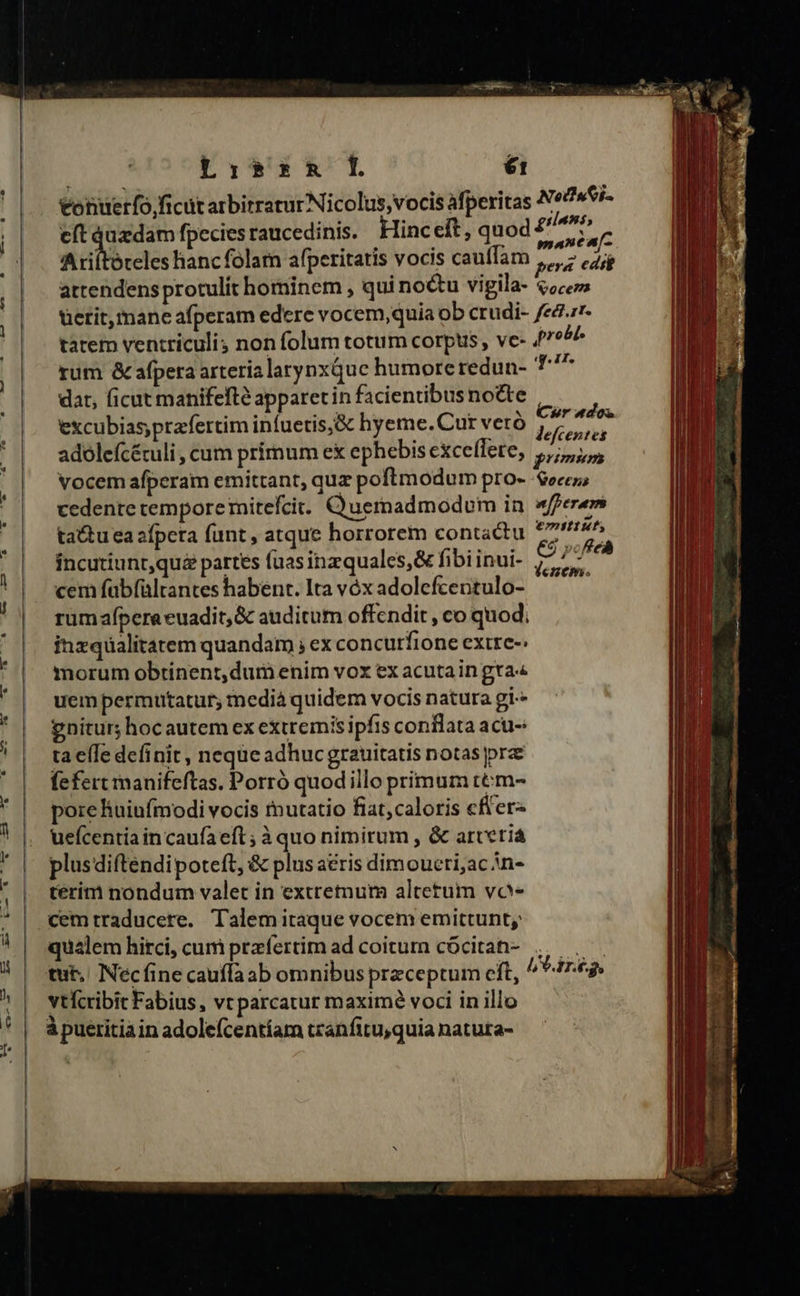 LIBER I. 61
conuerso, sicut arbitratur Nicolus, vocis asperitas
est quædam species raucedinis. Hinc est, quod
Aristoteles hanc solam asperitatis vocis caussam
attendens protulit hominem, qui noctu vigila-
uerit, mane asperam edere vocem, quia ob crudi-
tatem ventriculi; non solum totum corpus, ve-
rum & aspera arteria larynxque humore redun-
dat, sicut manifestè apparet in facientibus nocte
excubias, præsertim insuetis, & hyeme. Cur verò
adolescétuli, cum primum ex ephebis excessere,
vocem asperam emittant, quæ postmodum pro-
cedente tempore mitescit. Quemadmodum in
tactu ea aspera sunt, atque horrorem contactu
incutiunt, quæ partes suas inæquales, & sibi inui-
cem subsultantes habent. Ita vóx adolescentulo-
rum aspera euadit, & auditum offendit, eo quod
inæqualitatem quandam; ex concursione extre-
morum obtinent, dum enim vox ex acuta in gra-
uem permutatur, mediâ quidem vocis natura gi-
gnitur; hoc autem ex extremis ipsis conflata acu-
ta esse definit, neque adhuc grauitatis notas præ
se fert manifestas. Porrò quod illo primum tem-
pore huiusmodi vocis mutatio fiat, caloris efser-
uescentia in causa est; à quo nimirum, & arteria
plus distendi potest, & plus aëris dimoueri, ac in-
terim nondum valet in extremum alterum vo-
cem traducere. Talem itaque vocem emittunt,
qualem hirci, cum præsertim ad coitum cócitan-
tur. Nec sine caussa ab omnibus præceptum est,
vt scribit Fabius, vt parcatur maximè voci in illo
à pueritia in adolescentiam transitu, quia natura-
Noctu vi-
gilans,
mane as-
perã edit
vocem
sect. 11.
probl.
q. 17.
Cur ado-
lescentes
primùm
vocem
asperam
emittãt,
& posteà
lenem.